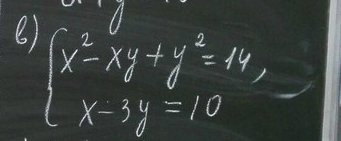 в) { x² - xy + y² = 14,
x - 3y = 10